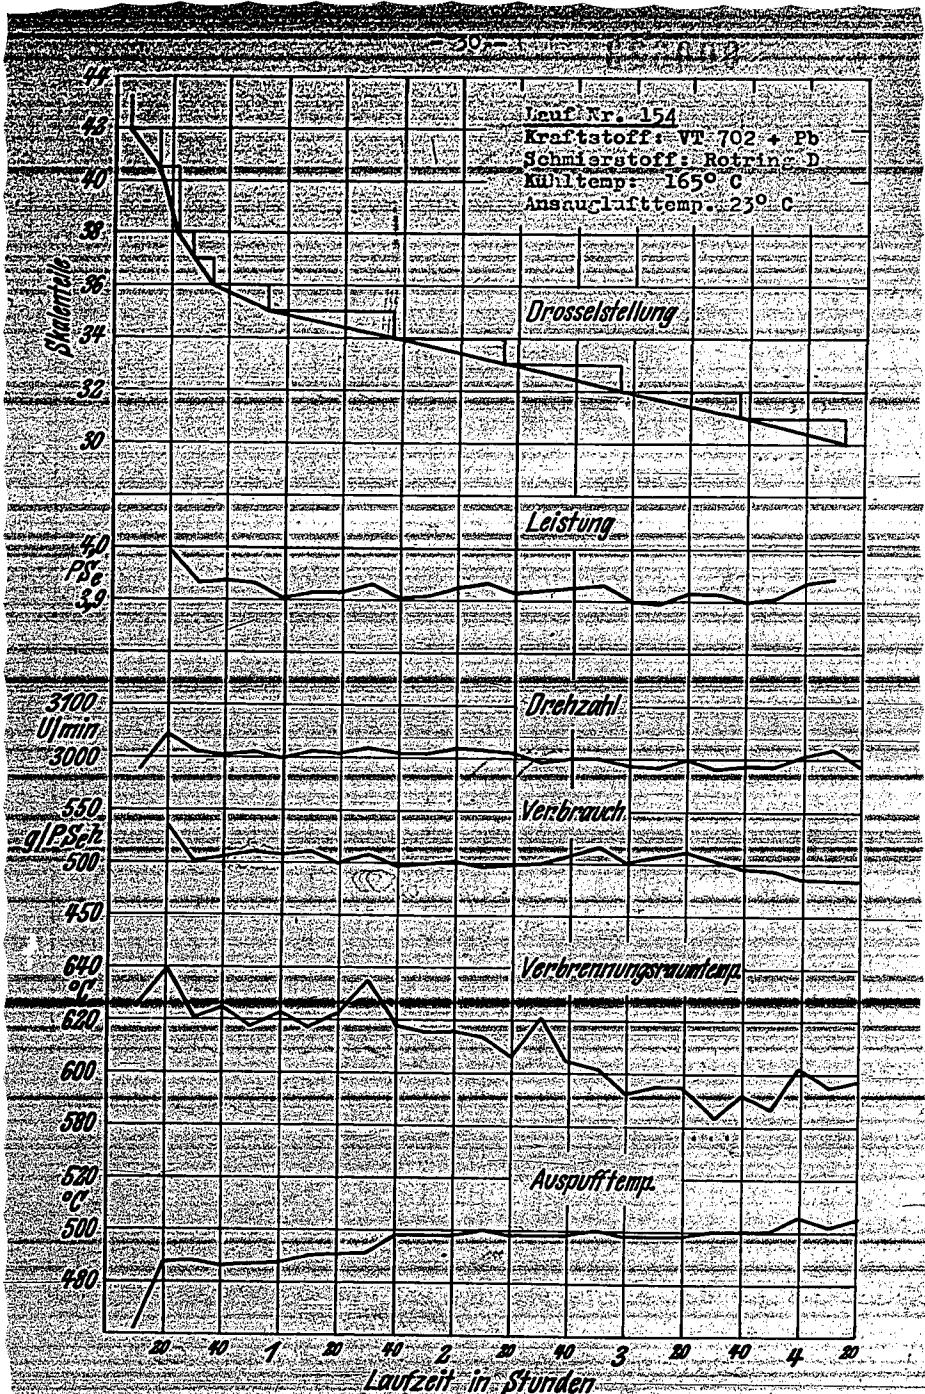 - 30 -
Lauf Nr. 154
Kraftstoff: VT 702 + Pb
Schmierstoff: Rotring D
Kühltemp: 165° C
Ansauglufttemp. 23° C
44
42
40
38
36
34
32
30
Skalenteile
Drosselstellung
Leistung
4,0
PSe
3,9
Drehzahl
3100
U/min
3000
Verbrauch
550
g/PSeh
500
450
Verbrennungsraumtemp.
640
°C
620
600
580
Auspufftemp.
520
°C
500
480
20 40 1 20 40 2 20 40 3 20 40 4 20
Laufzeit in Stunden